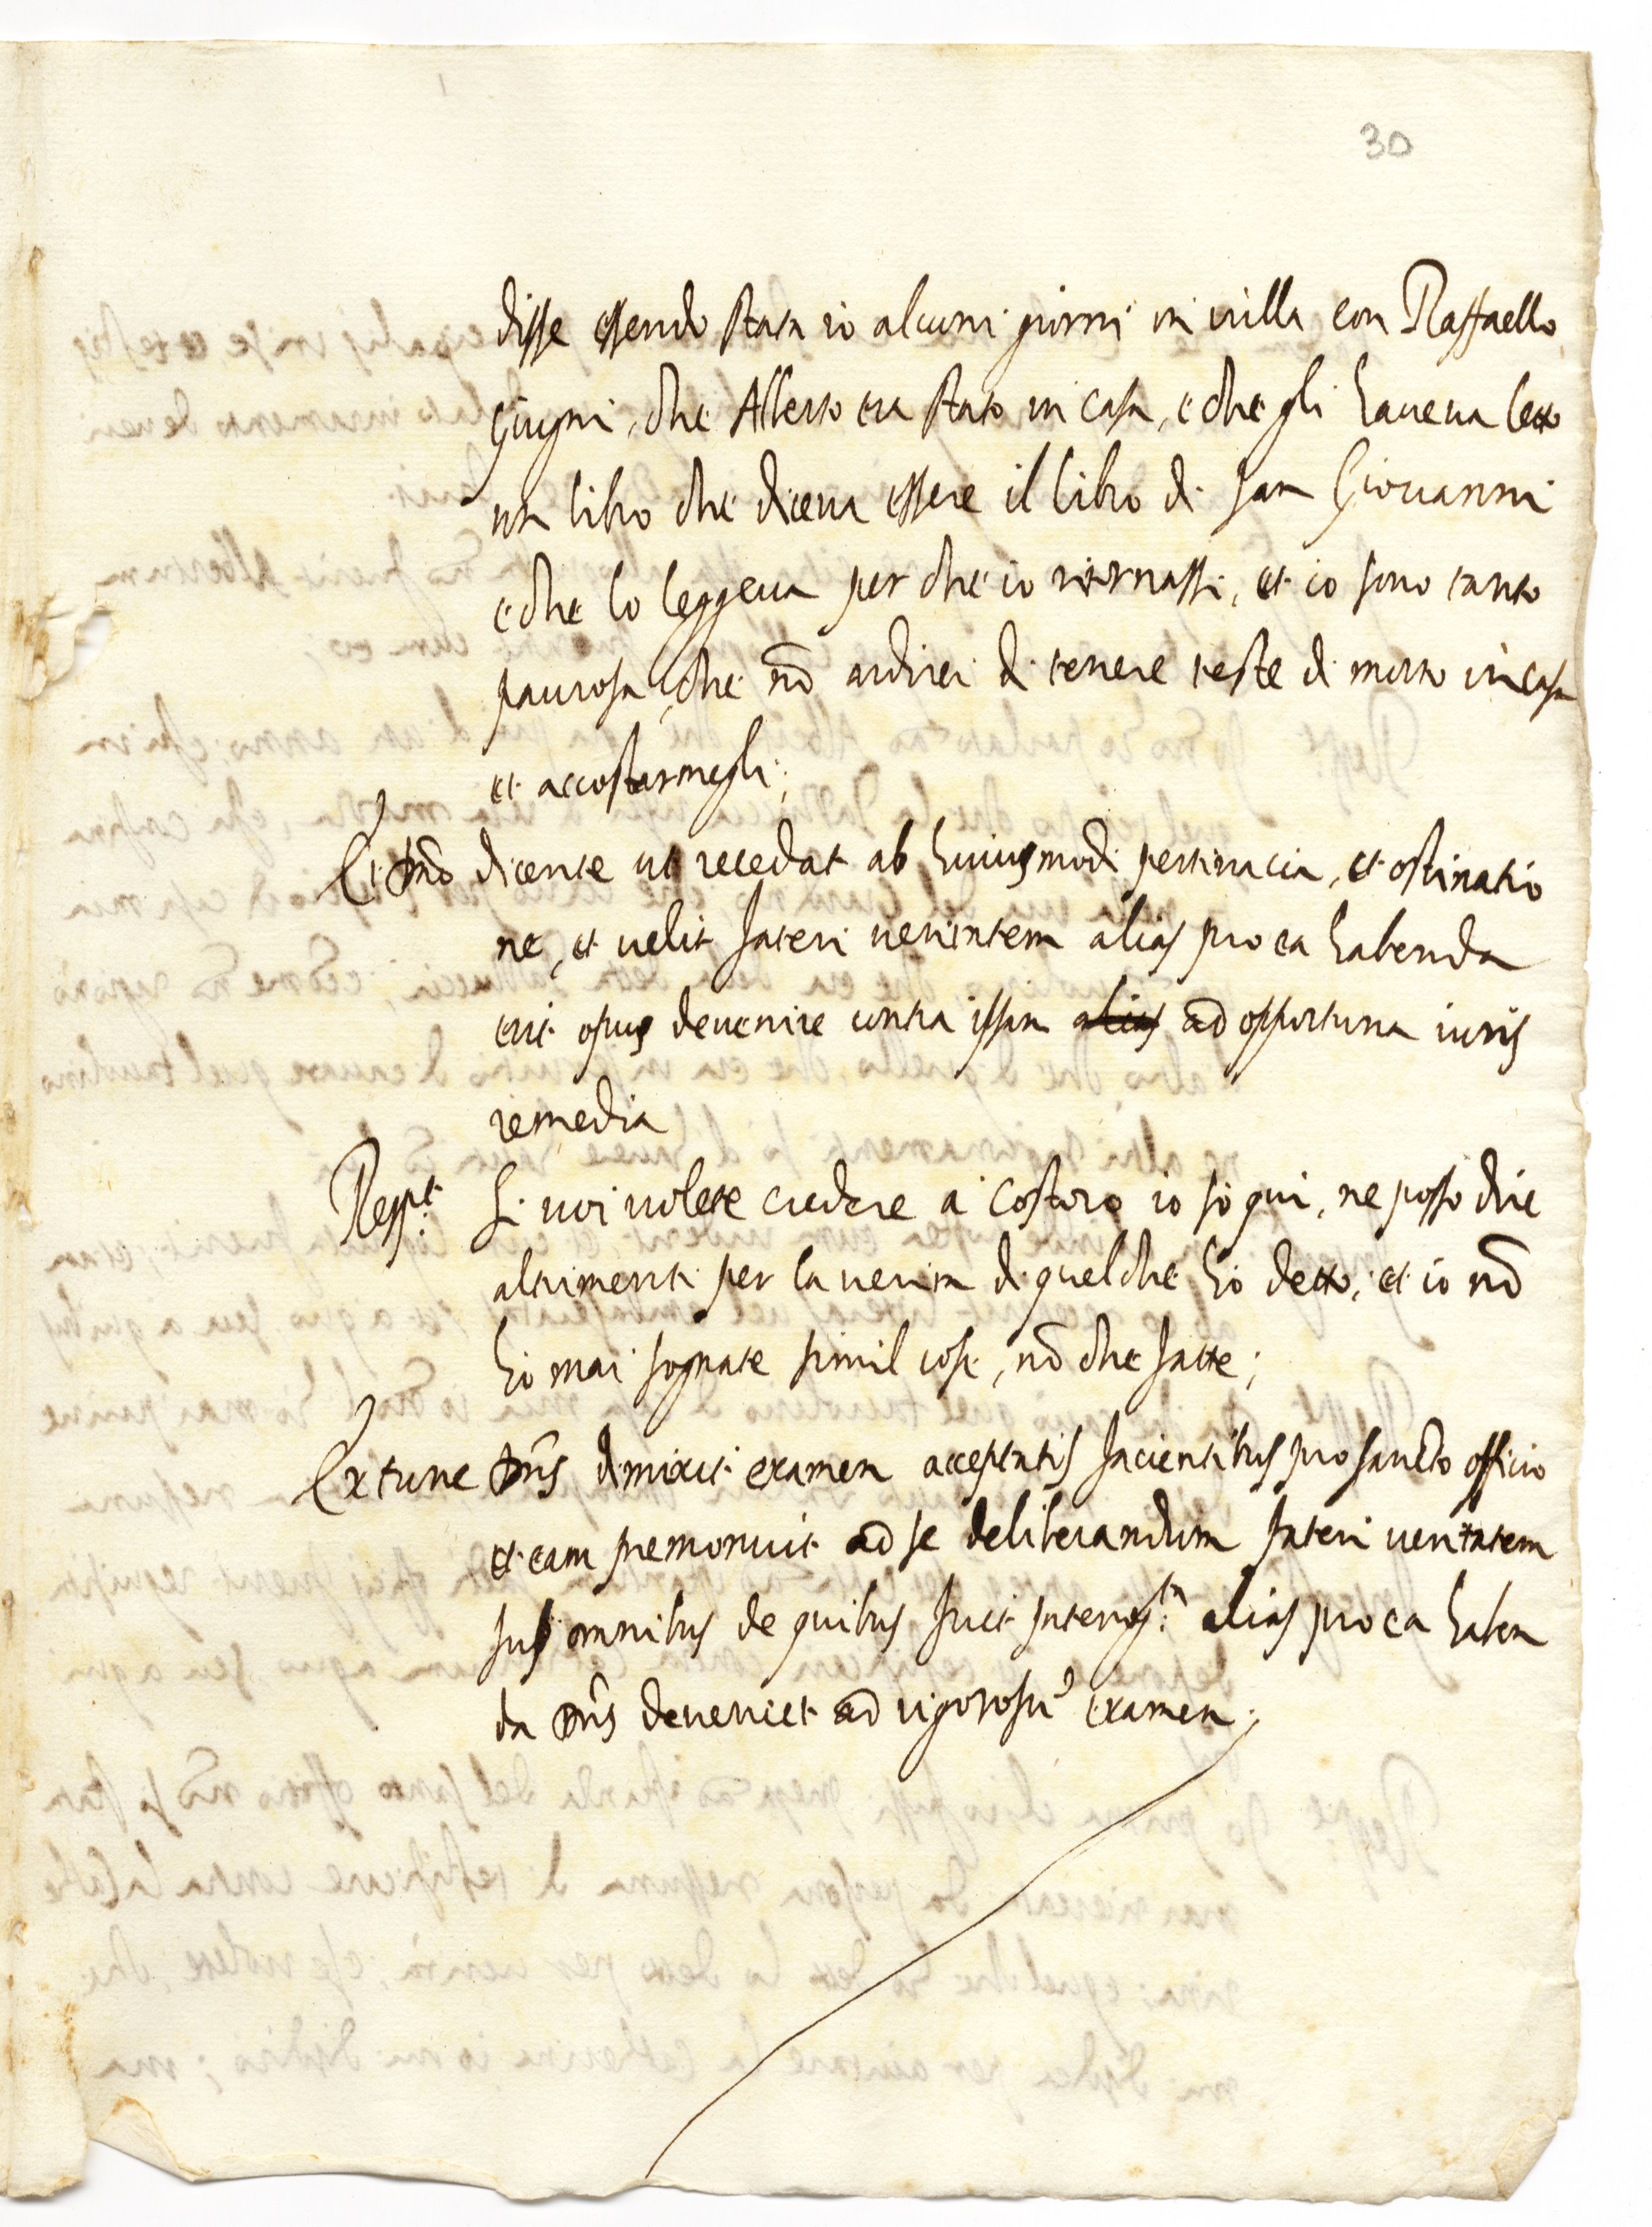 30
disse essendo stata io alcuni giorni in villa con Raffaello
Giugni, che Alberto era stato in casa, e che gli haveva letto
un libro che diceva essere il libro di san Giovanni
e che lo leggeva per che io ritornassi, et io sono tanto
paurosa, che nō ardirei di tenere teste di morto in casa
et accostarmegli;
Et Dn̄o dicente ut recedat ab huiusmodi pertinacia, et ostinatio
ne, et velit fateri veritatem alias pro ea habenda
erit opus devenire contra ipsam alias ad opportuna iuris
remedia
Resp.t Si voi volete credere a costoro io so qui, ne posso dire
altrimenti per la verita di quel che ho detto, et io nō
ho mai sognate simil cose, nō che fatte;
Ex tunc Dn̄s dimixit examen acceptatis facientibus pro sancto officio
et eam premonuit ad se deliberandum fateri veritatem
sup omnibus de quibus fuit interog.ta alias pro ea haben
da Dn̄s deveniet ad rigorosū examen;